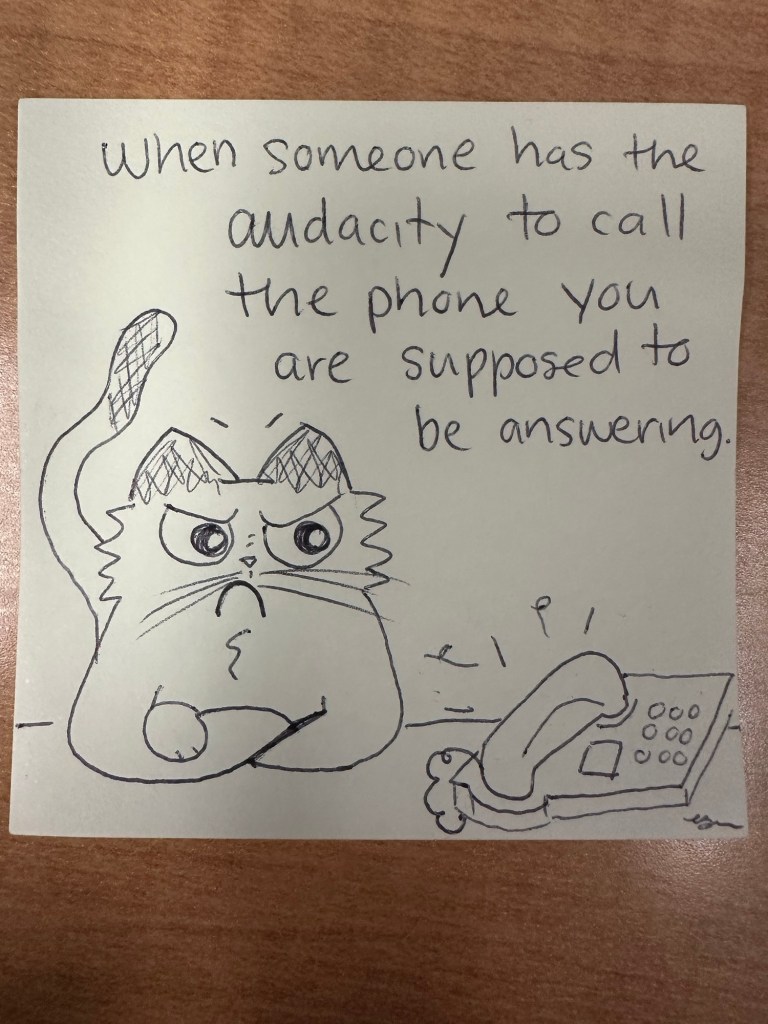 When someone has the
audacity to call
the phone you
are supposed to
be answering.